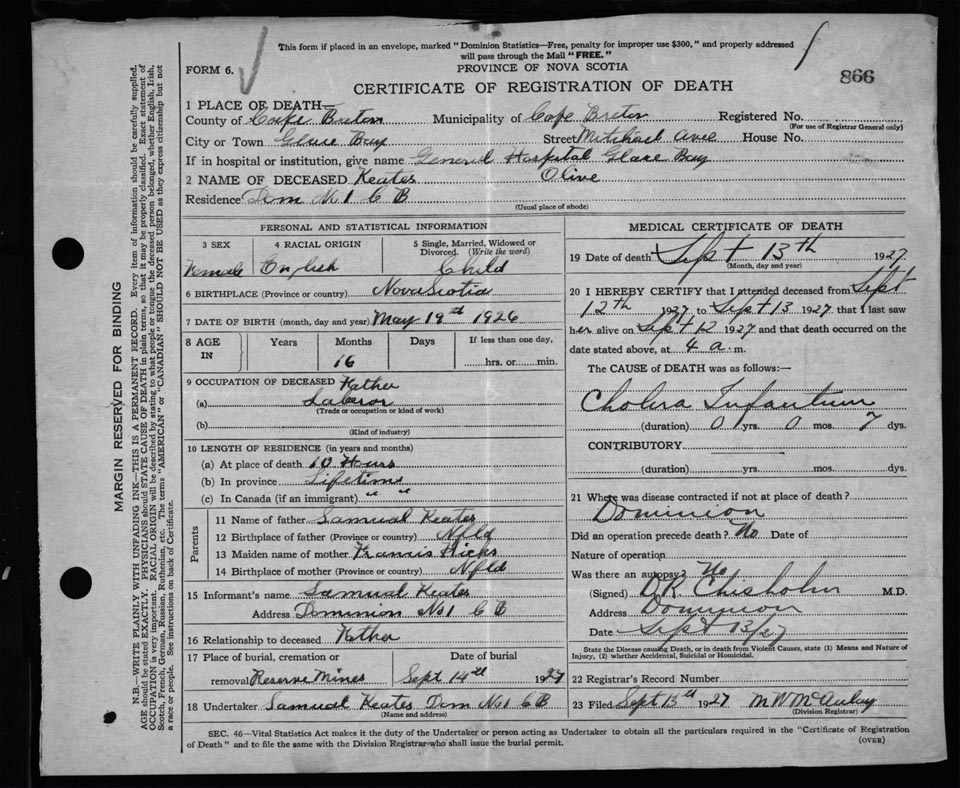 This form if placed in an envelope, marked "Dominion Statistics—Free, penalty for improper use $300," and properly addressed
will pass through the Mail "FREE."
FORM 6.
PROVINCE OF NOVA SCOTIA
866
CERTIFICATE OF REGISTRATION OF DEATH
1 PLACE OF DEATH—
County of Cape Breton Municipality of Cape Breton Registered No.
(For use of Registrar General only)
City or Town Glace Bay Street Mitchael Ave House No.
If in hospital or institution, give name General Hospital Glace Bay
2 NAME OF DECEASED Keates Olive
Residence Dom No 1 C B
(Usual place of abode)
PERSONAL AND STATISTICAL INFORMATION
3 SEX 4 RACIAL ORIGIN 5 Single, Married, Widowed or
Divorced. (Write the word)
Female English Child
6 BIRTHPLACE (Province or country) Nova Scotia
7 DATE OF BIRTH (month, day and year) May 19th 1926
8 AGE IN Years Months Days If less than one day,
16 hrs. or min.
9 OCCUPATION OF DECEASED Father
(a) Laberor
(Trade or occupation or kind of work)
(b)
(Kind of industry)
10 LENGTH OF RESIDENCE (in years and months)
(a) At place of death 10 Hours
(b) In province Lifetime
(c) In Canada (if an immigrant) " "
Parents
11 Name of father Samual Keates
12 Birthplace of father (Province or country) Nfld
13 Maiden name of mother Francis Hicks
14 Birthplace of mother (Province or country) Nfld
15 Informant's name Samual Keates
Address Dominion No 1 C B
16 Relationship to deceased Father
17 Place of burial, cremation or Date of burial
removal Reserve Mines Sept 14th 1927
18 Undertaker Samual Keates Dom No 1 C B
(Name and address)
MEDICAL CERTIFICATE OF DEATH
19 Date of death Sept 13th 1927
(Month, day and year)
20 I HEREBY CERTIFY that I attended deceased from Sept
12th 1927 to Sept 13 1927 that I last saw
her alive on Sept 12 1927 and that death occurred on the
date stated above, at 4 a. m.
The CAUSE of DEATH was as follows:—
Cholera Infantum
(duration) 0 yrs. 0 mos. 7 dys.
CONTRIBUTORY
(duration) yrs. mos. dys.
21 Where was disease contracted if not at place of death?
Dominion
Did an operation precede death? No Date of
Nature of operation
Was there an autopsy? No
(Signed) D.R. Chisholm M.D.
Address Dominion
Date Sept 13/27
State the Disease causing Death, or in death from Violent Causes, state (1) Means and Nature of
Injury, (2) whether Accidental, Suicidal or Homicidal.
22 Registrar's Record Number
23 Filed Sept 13th 1927 M W McAulay
(Division Registrar)
SEC. 46—Vital Statistics Act makes it the duty of the Undertaker or person acting as Undertaker to obtain all the particulars required in the "Certificate of Registration
of Death" and to file the same with the Division Registrar who shall issue the burial permit.
(OVER)
MARGIN RESERVED FOR BINDING
N.B.—WRITE PLAINLY WITH UNFADING INK—THIS IS A PERMANENT RECORD. Every item of information should be carefully supplied.
AGE should be stated EXACTLY. PHYSICIANS should STATE CAUSE OF DEATH in plain terms, so that it may be properly classified. Exact statement of
OCCUPATION is very important. RACIAL ORIGIN will be described by stating to what people or tongue the deceased person belonged, whether English, Irish,
Scotch, French, German, Russian, Ruthenian, etc. The terms "AMERICAN" or "CANADIAN" SHOULD NOT BE USED as they express citizenship but not
a race or people. See instructions on back of Certificate.